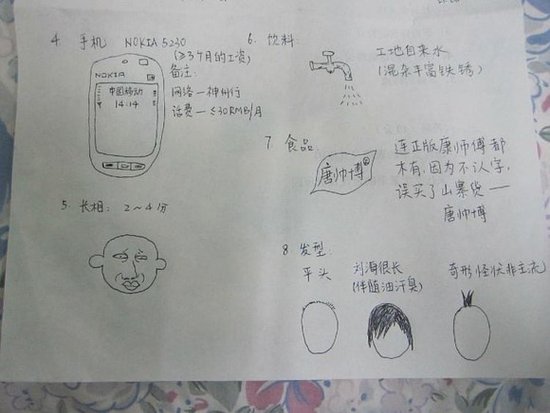 4. 手机 NOKIA 5230
(≥3个月的工资)
备注:
网络—神州行
话费—≤30RMB/月
NOKIA
中国移动
14:14
5. 长相: 2~4分
6. 饮料
工地自来水
(混杂丰富铁锈)
7. 食品
唐帅博®
连正版康师傅都
木有,因为不认字,
误买了山寨货——
唐帅博
8. 发型
平头
刘海很长
(伴随油汗臭)
奇形怪状非主流